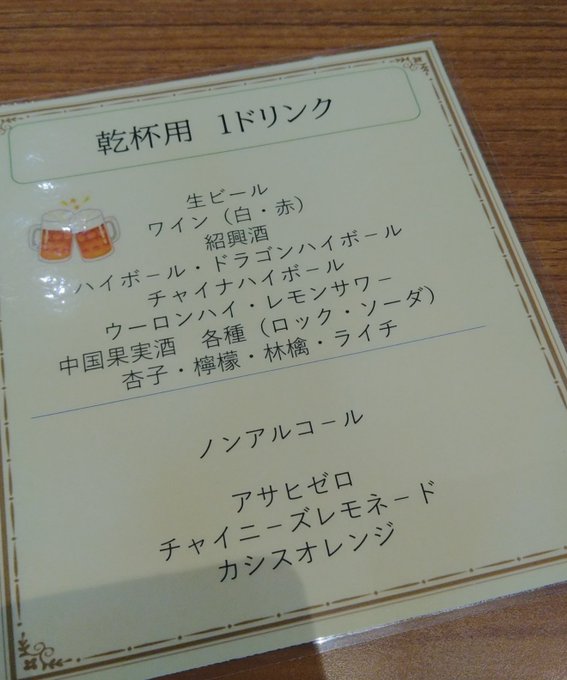 乾杯用 1ドリンク
生ビール
ワイン（白・赤）
紹興酒
ハイボール・ドラゴンハイボール
チャイナハイボール
ウーロンハイ・レモンサワー
中国果実酒 各種（ロック・ソーダ）
杏子・檸檬・林檎・ライチ
ノンアルコール
アサヒゼロ
チャイニーズレモネード
カシスオレンジ